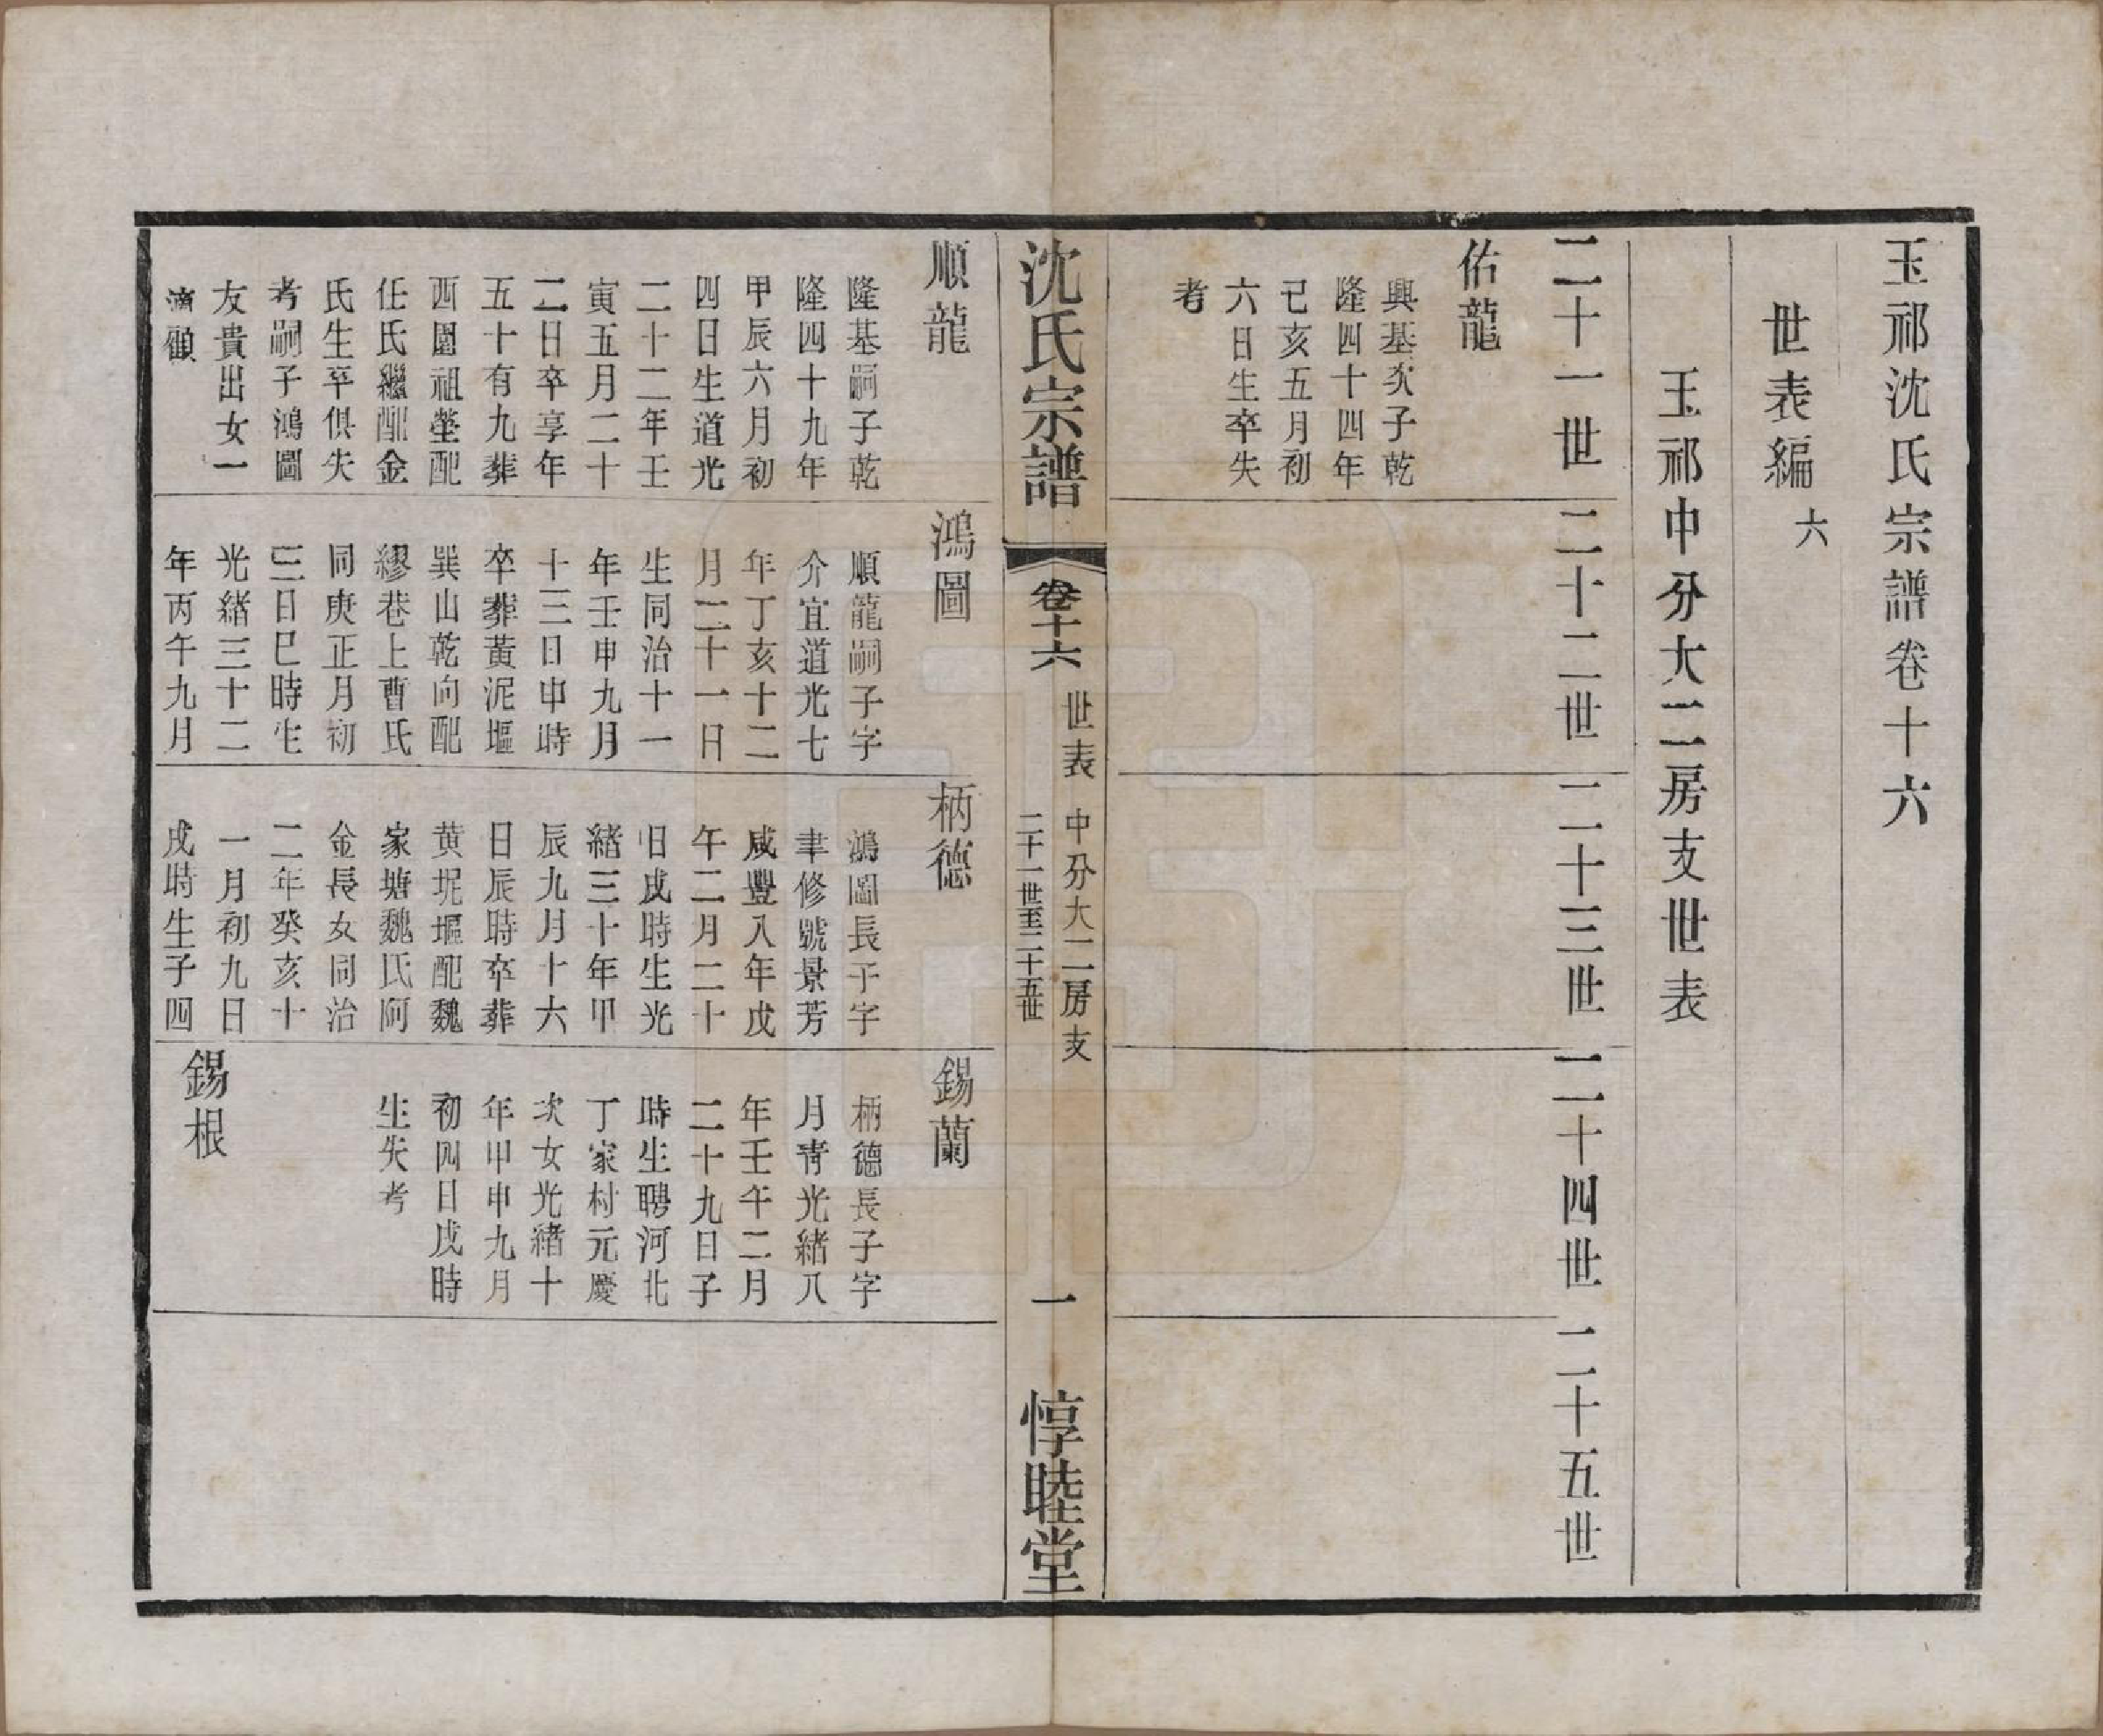 玉祁沈氏宗譜卷十六
世表編
六
玉祁中分大二房支世表
二十一世
二十二世
二十三世
二十四世
二十五世
佑龍
興基次子乾
隆四十四年
己亥五月初
六日生卒失
考
沈氏宗譜
卷十六
世表
中分大二房支
二十一世至二十五世
一
惇睦堂
順龍
隆基嗣子乾
隆四十九年
甲辰六月初
四日生道光
二十二年壬
寅五月二十
二日卒享年
五十有九葬
西園祖塋配
任氏繼配金
氏生卒俱失
考嗣子鴻圖
友貴出女一
適顧
鴻圖
順龍嗣子字
介宜道光七
年丁亥十二
月二十一日
生同治十一
年壬申九月
十三日申時
卒葬黃泥塸
巽山乾向配
繆巷上曹氏
同庚正月初
三日巳時生
光緒三十二
年丙午九月
柄德
鴻圖長子字
聿修號景芳
咸豐八年戊
午二月二十
日戌時生光
緒三十年甲
辰九月十六
日辰時卒葬
黄坭塸配魏
家塘魏氏阿
金長女同治
二年癸亥十
一月初九日
戌時生子四
錫蘭
柄德長子字
月靑光緒八
年壬午二月
二十九日子
時生聘河北
丁家村元慶
次女光緒十
年甲申九月
初四日戌時
生失考
錫根